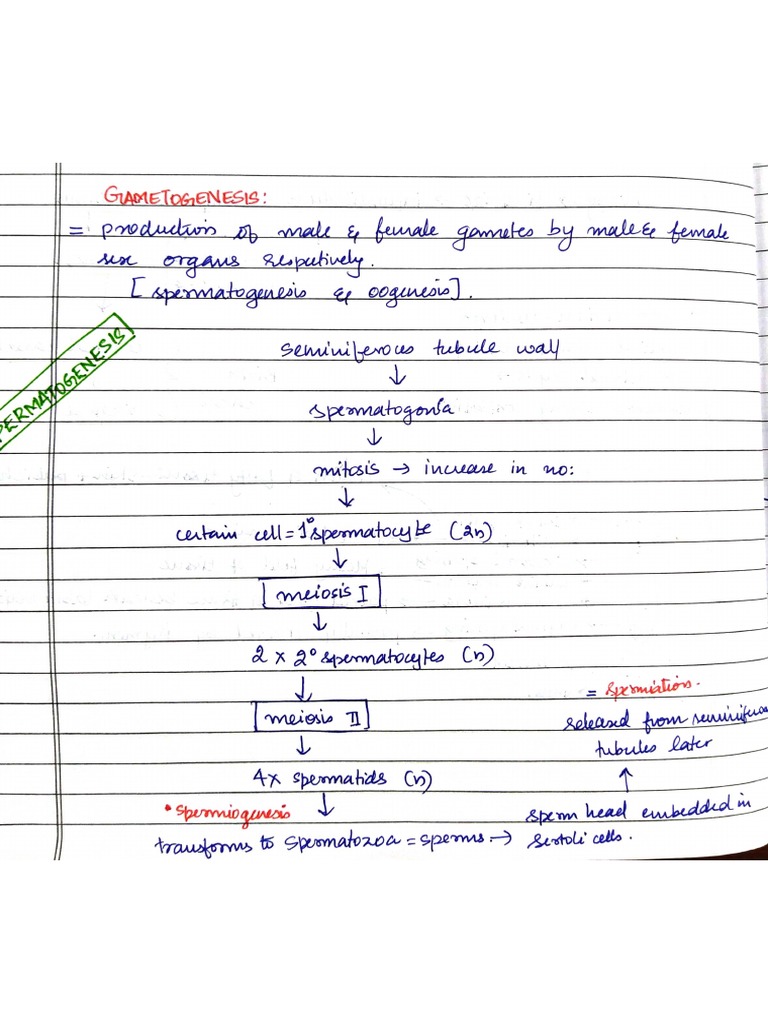 GAMETOGENESIS:
= production of male & female gametes by male & female
sex organs respectively.
[spermatogenesis & oogenesis].
PERMATOGENESIS
seminiferous tubule wall
↓
spermatogonia
↓
mitosis → increase in no:
↓
certain cell = 1° spermatocyte (2n)
↓
meiosis I
↓
2 × 2° spermatocytes (n)
↓
meiosis II
↓
4x spermatids (n)
• spermiogenesis ↓
transforms to spermatozoa = sperms. →
sperm head embedded in
sertoli cells.
↑
= spermiation.
released from seminiferous
tubules later